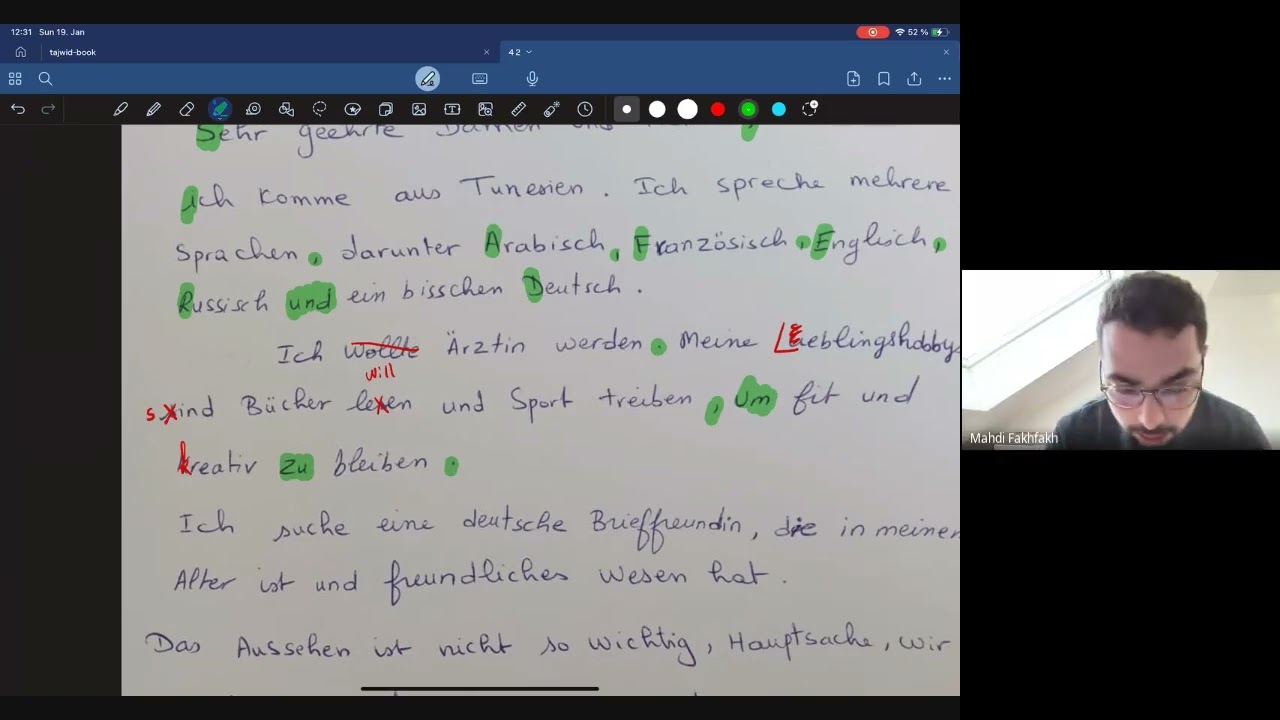 12:31 Sun 19. Jan
52 %
tajwid-book
4 2
Sehr geehrte Damen
ich komme aus Tunesien. Ich spreche mehrere
Sprachen, darunter Arabisch, Französisch, Englisch,
Russisch und ein bisschen Deutsch.
Ich wollte Ärztin werden. Meine Lieblingshobbys
will
sind Bücher lexen und Sport treiben, um fit und
kreativ zu bleiben.
Ich suche eine deutsche Brieffreundin, die in meinen
Alter ist und freundliches Wesen hat.
Das Aussehen ist nicht so wichtig, Hauptsache, wir
Mahdi Fakhfakh